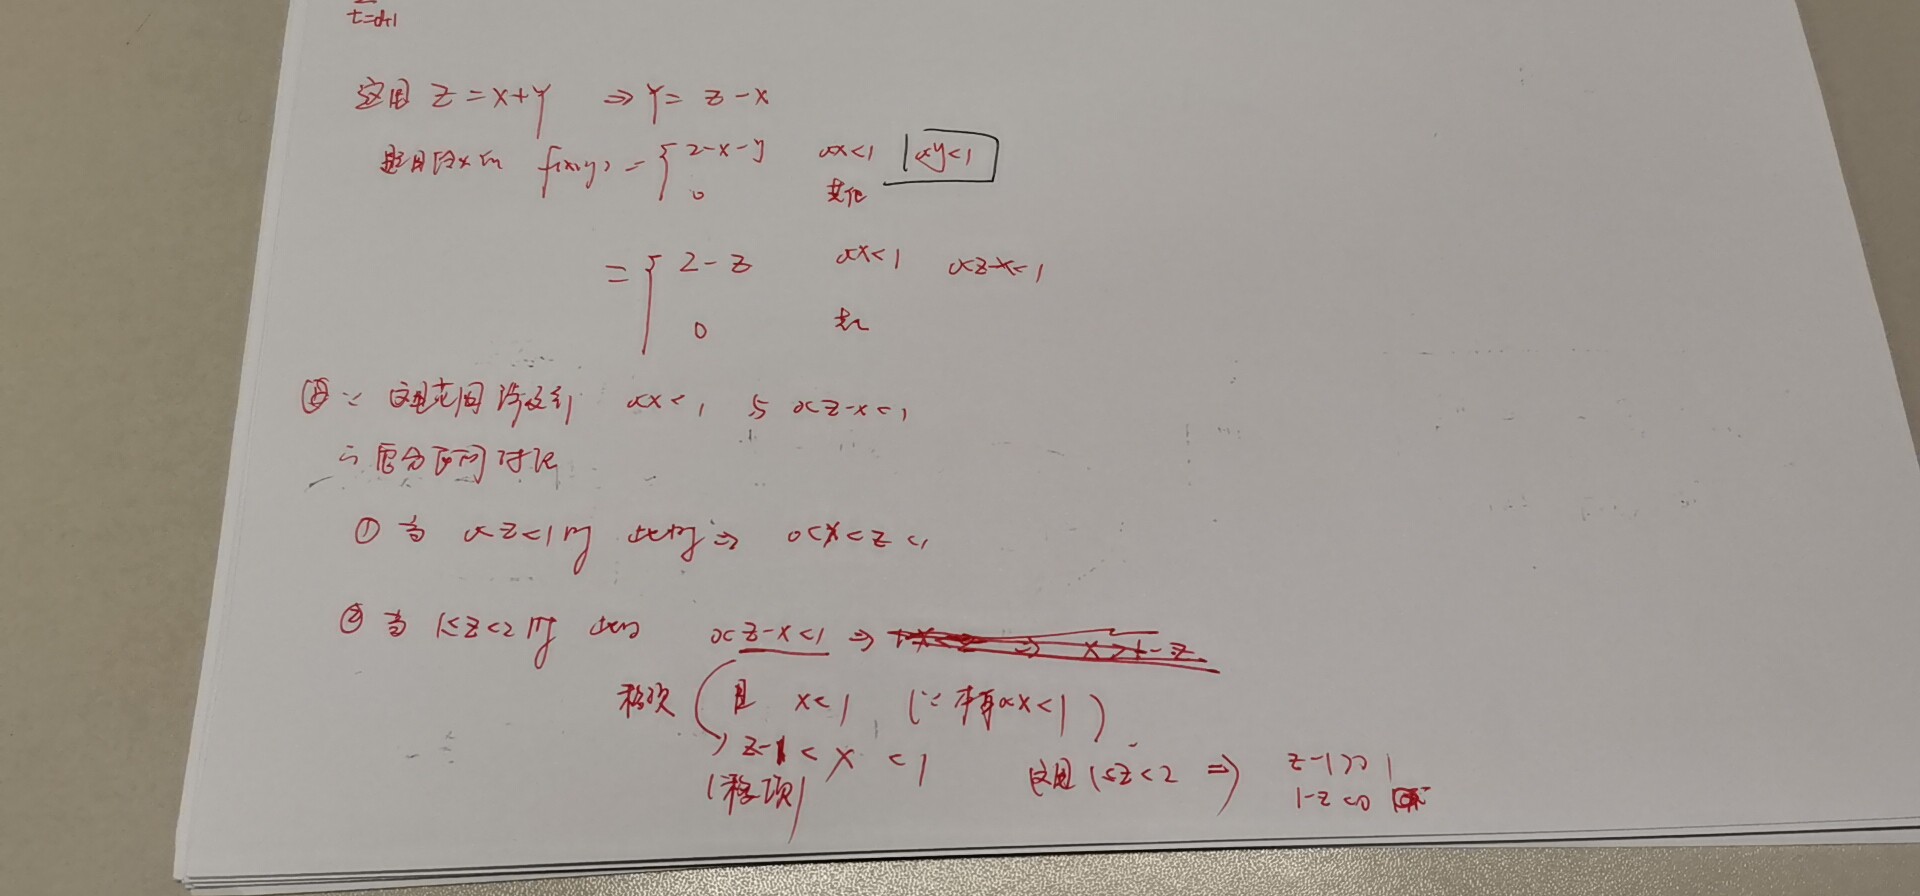 t=d+1
这里 Z=X+Y ⇒ Y= z-x
题目 f(x,y)= { 2-x-y 0<x<1 0<y<1
0 其他
= { 2-z 0<x<1 0<z-x<1
0 其他
∵ 这里范围涉及到 0<x<1 与 0<z-x<1
∴ 需分区间讨论
① 当 0<z<1时 此时⇒ 0<x<z<1
② 当 1≤z<2时 此时 0<z-x<1 ⇒
移项 且 x<1 (∵ 本身0<x<1)
z-1<x<1 这里1≤z<2 ⇒ z-1>0
(移项) 1-z<0